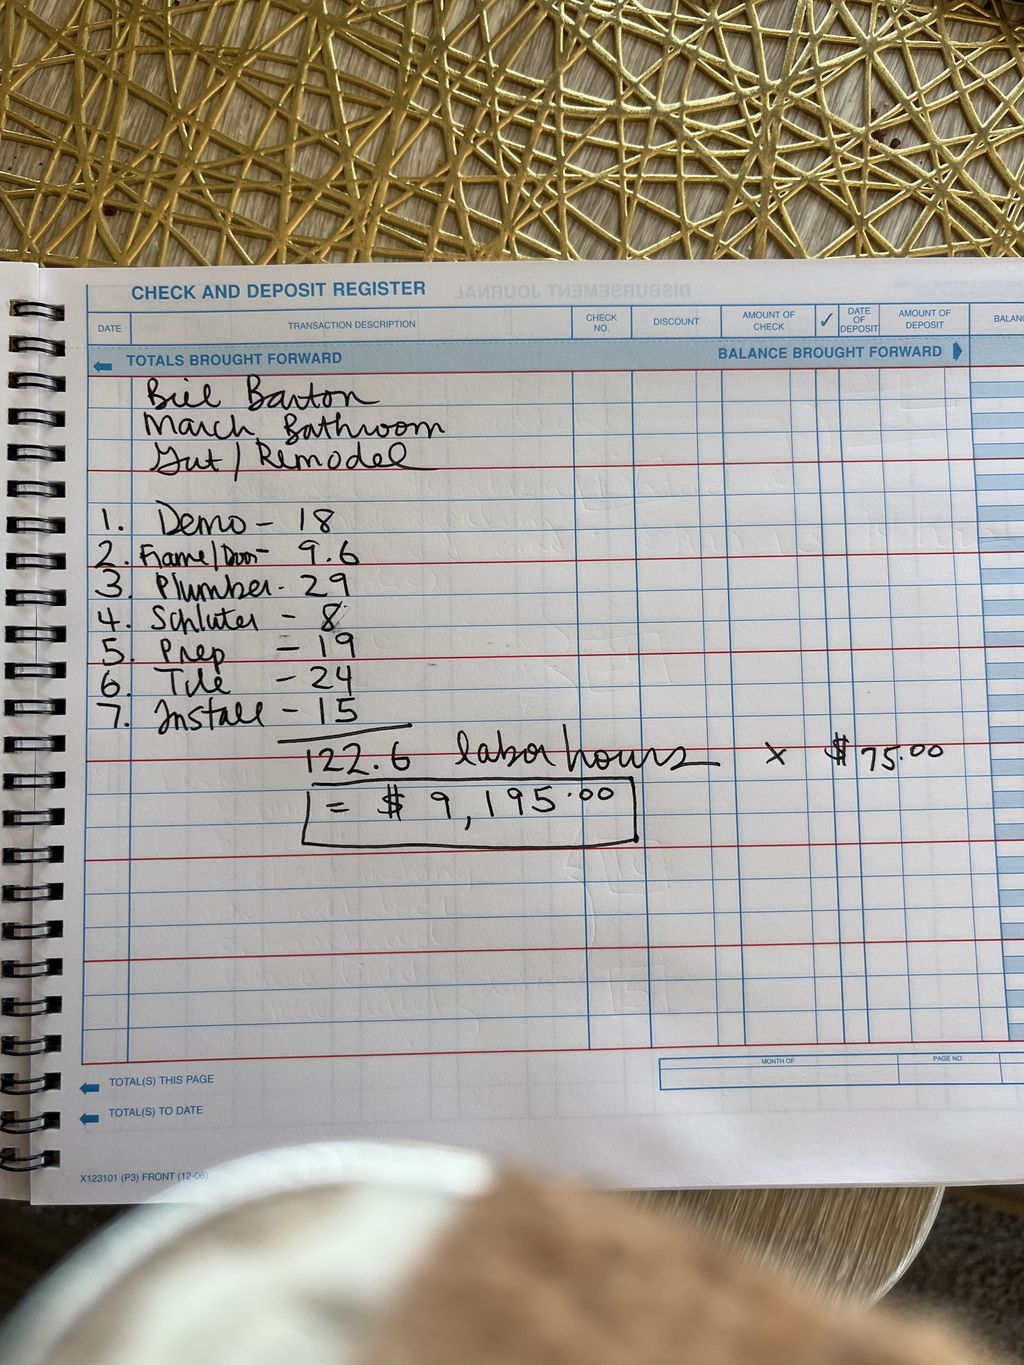 CHECK AND DEPOSIT REGISTER
DISBURSEMENT JOURNAL
DATE TRANSACTION DESCRIPTION CHECK NO. DISCOUNT AMOUNT OF CHECK ✓ DATE OF DEPOSIT AMOUNT OF DEPOSIT
TOTALS BROUGHT FORWARD BALANCE BROUGHT FORWARD
Bill Barton
March Bathroom
Gut / Remodel
1. Demo - 18
2. Frame/Door - 9.6
3. Plumber - 29
4. Schluter - 8
5. Prep - 19
6. Tile - 24
7. Install - 15
122.6 labor hours x $75.00
= $ 9,195.00
MONTH OF PAGE NO.
TOTAL(S) THIS PAGE
TOTAL(S) TO DATE
X123101 (P3) FRONT (12-06)